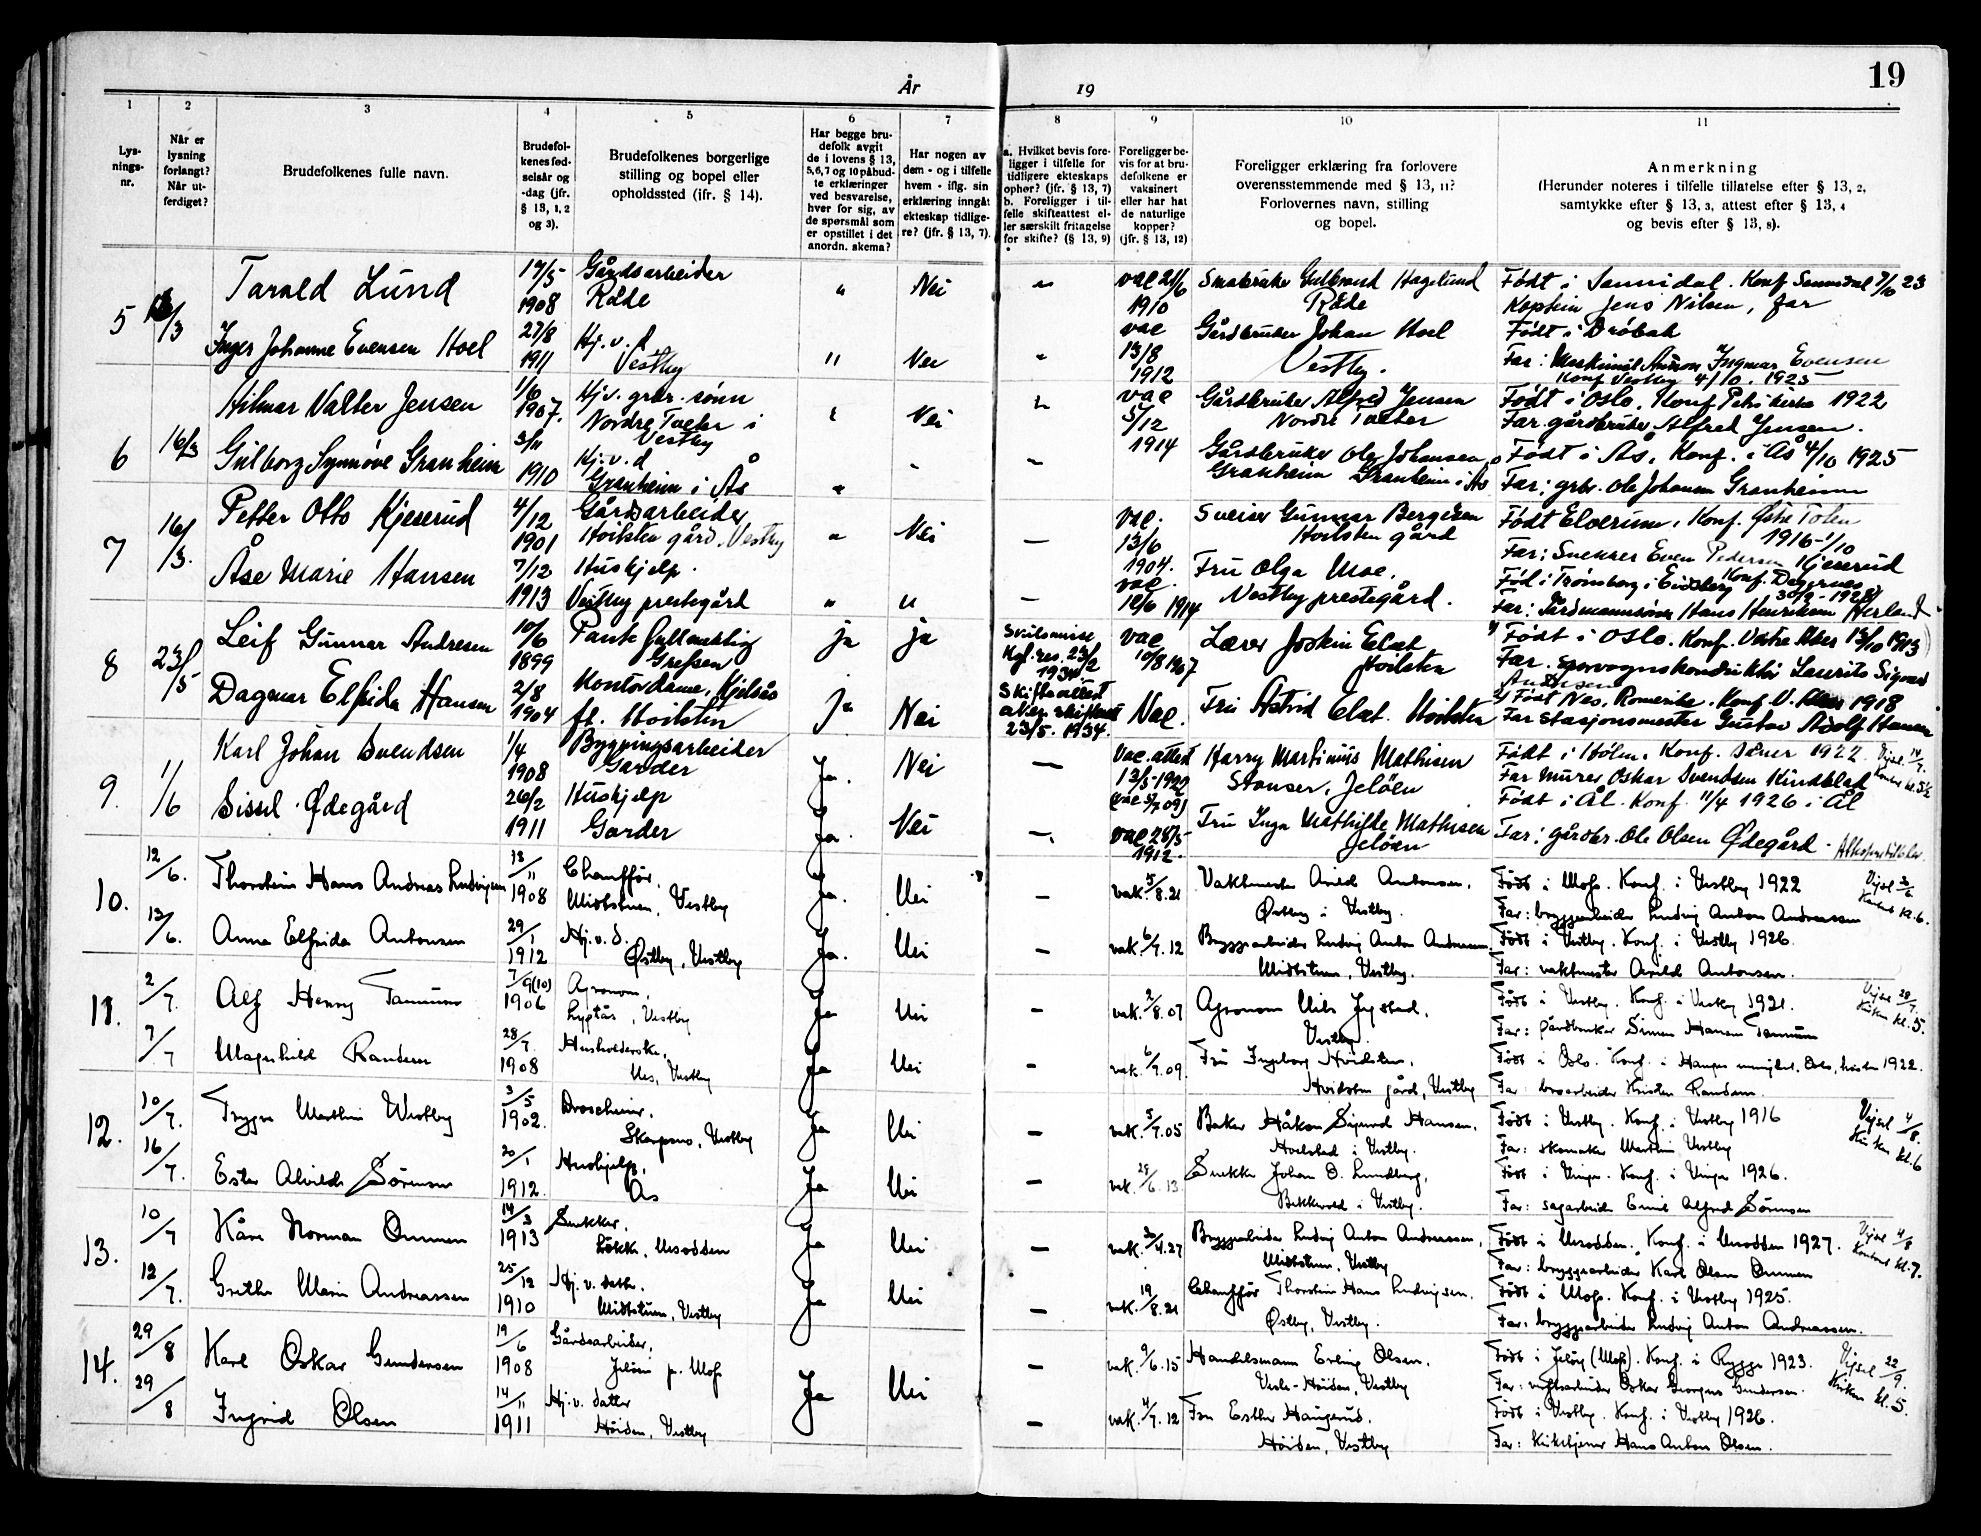 19
År 19
1 2 3 4 5 6 7 8 9 10 11
Lysningsnr.
Når er lysning forlangt? Når utferdiget?
Brudefolkenes fulle navn.
Brudefolkenes fødselsår og -dag (jfr. § 13, 1, 2 og 3).
Brudefolkenes borgerlige stilling og bopel eller opholdssted (jfr. § 14).
Har begge brudefolk avgit de i lovens § 13, 5,6,7 og 10 påbudte erklæringer ved besvarelse, hver for sig, av de spørsmål som er opstillet i det anordn. skema?
Har nogen av dem - og i tilfelle hvem - iflg. sin erklæring inngåt ekteskap tidligere? (jfr. § 13, 7).
a. Hvilket bevis foreligger i tilfelle for tidligere ekteskaps ophør? (jfr. § 13, 7) b. Foreligger i tilfelle skifteattest eller særskilt fritagelse for skifte? (§ 13, 9)
Foreligger bevis for at brudefolkene er vaksinert eller har hat de naturlige kopper? (jfr. § 13, 12)
Foreligger erklæring fra forlovere overensstemmende med § 13, 11? Forlovernes navn, stilling og bopel.
Anmerkning (Herunder noteres i tilfelle tillatelse efter § 13, 2, samtykke efter § 13, 3, attest efter § 13, 4 og bevis efter § 13, 8).
5 /3 Tarald Lund 17/5 1908 Gårdsarbeider Råde " Nei " vac 21/6 1910 Småbruker Gulbrand Hagelund Råde Født i Sannidal. Konf Sannidal 7/10 23 Kaptein Jens Nilsen, far
Inger Johanne Evensen Hoel 27/8 1911 Hj. v. d Vestby " Nei " vac 13/8 1912 Gårdbruker Johan Hoel Vestby. Født i Drøbak Far: Maskinist Ingmar Evensen Konf Vestby 4/10. 1925
6 16/3 Hilmar Valter Jensen 1/6 1907. Hj. v. grbr. sønn Nordre Tveter i Vestby " Nei " vac 5/12 1914 Gårdbruker Alfred Jensen Nordre Tveter Født i Oslo. Konf Petri kirke 1922 Far. gårdbruker Alfred Jensen.
Gulborg Synnøve Granheim 3/11 1910 Hj. v. d Granheim i Ås " - Gårdbruker Ole Johansen Granheim Granheim i Ås Født i Ås. Konf. i Ås 4/10 1925 Far: grbr. Ole Johansen Granheim
7 16/3. Petter Otto Kjeserud 4/12 1901 Gårdsarbeider Hvitsten gård. Vestby " Nei — vac. 13/6 1904. Sveiser Gunnar Bergersen Hvitsten gård Født Elverum. Konf. Østre Toten 1916-1/10 Far: Snekker Even Pedersen Kjeserud
Åse Marie Hansen 7/12 1913 Huskjelp. Vestby prestegård " " — vac. 12/6 1914 Fru Olga Moe. Vestby prestegård. Fød i Trømborg i Eidsberg Konf. Degernes 30/9-1928 Far: Hans Henriksen Herland
8 23/5 Leif Gunnar Andresen 10/6 1899 Grefsen ja ja Skilsmisse Kgl. res. 23/2 1934 vac 10/8 1907 Lærer Joakim Elat Hvitsten 1) Født i Oslo. Konf. Vestre Aker 12/10 1913 Far. sporvognskonduktør Laurits Sigvard Andresen
Dagmar Elfrida Hansen 2/8 1904 Kontordame, Kjelsås ft. Hvitsten ja Nei Skifteattest 23/5. 1934. Vac. Fru Astrid Elat. Hvitsten 2) Født Nes, Romerike. Konf V. Aker 1918 Far stasjonsmester Gustav Adolf Hansen
9. 1/6 Karl Johan Svendsen 1/4 1908 Bygningsarbeider Garder Ja. Nei — Vac. attest 13/5-1922 Harry Martinius Mathisen Stanser, Jeløen Født i Hølen. Konf. 1922 Far murer Oskar Svendsen Kindblad
Sissel Ødegård 26/2 1911 Huskjelp Garder Ja. Nei — vac 28/5-1912. Fru Inga Mathilde Mathisen Jeløen Født i Ål. Konf. 11/4 1926 i Ål Far: gårdbr. Ole Olsen Ødegård.
10. 12/6. Thorstein Hans Andreas Ludvigsen 13/11 1908 Chauffør, Midtstuen, Vestby Ja. Nei — vak. 5/8.21 Vaktmester Arild Antonsen, Østby i Vestby. Født i Moss. Konf. i Vestby 1922 Far: bryggearbeider Ludvig Anton Andreassen Vigsel 3/6 Kontoret kl. 6.
13/6. Anna Elfrida Antonsen 29/1 1912 Hj. v. d. Østby, Vestby Ja. Nei — vak. 6/7. 12 Bryggearbeider Ludvig Anton Andreassen, Midtstuen, Vestby. Født i Vestby. Konf. i Vestby 1926. Far: vaktmester Arild Antonsen.
11. 2/7. Alf Henry Tannum 7/9(10) 1906 Agronom, Vestby Ja Nei — vak. 2/8.07 Agronom Nils Jystad, Vestby. Født i Vestby. Konf. i Vestby 1921. Far: gårdbruker Simen Hansen Tannum Vigsel 28/7. Kirken kl. 5.
7/7 Magnhild Randem 28/7. 1908 Husholderske, Nes, Vestby Ja Nei — vak. 6/9.09. Fru Ingeborg Hvidsten, Hvidsten gård, Vestby Født i Oslo. Konf. i Hauges menighet, Oslo, høsten 1922. Far: Kristen Randem.
12. 10/7. Trygve Marthin Vestby 3/5 1902. Drosjeeier, Skorpsno, Vestby Ja Nei — vak. 5/7.05 Baker Håkon Sigurd Hansen, i Vestby. Født i Vestby. Konf. i Vestby 1916 Far: skomaker Martin Vestby Vigsel 4/8. Kirken kl. 6
16/7. Ester Alvilde Sørensen 20/1 1912. Huskjelp, Ås Ja Nei — vak. 28/6.13 Snekker Johan O. Lundberg, Bekkevold i Vestby. Født i Vinger. Konf. i Vinger 1926. Far: sagarbeider Emil Alfred Sørensen
13. 10/7 Kåre Norman Ommen 14/3 1913 Snekker, Løkke, Nesodden Ja Nei — vak. 3/4.27 Bryggearbeider Ludvig Anton Andreassen, Midtstuen, Vestby Født i Nesodden. Konf. i Nesodden 1927. Far: bryggearbeider Karl Olsen Ommen Vigsel 4/8 Kontoret kl. 7.
12/7. Grethe Marie Andreassen 25/12 1910 Hj. v. datter, Midtstuen, Vestby Ja Nei — vak. 19/8.21 Chauffør Thorstein Hans Ludvigsen. Østby, Vestby. Født i Moss. Konf. i Vestby 1925. Far: bryggearbeider Ludvig Anton Andreassen.
14. 29/8 Karl Oskar Gundersen 19/6 1908 Gårdsarbeider, Jeløen p. Moss Ja Nei — vak. 9/6.15 Handelsmann Erling Olsen. Vesle-Høiden, Vestby Født i Jeløy (Moss). Konf. i Rygge 1923. Far: Oskar Georgius Gundersen. Vigsel 22/9. Kirken kl. 5.
29/8 Ingrid Olsen 14/11 1911 Hj. v. datter Høiden, Vestby — vak. 4/7. 12 Fru Esther Haugerud. Høiden, Vestby Født i Vestby. Konf. i Vestby 1926. Far: Kirketjener Hans Anton Olsen.